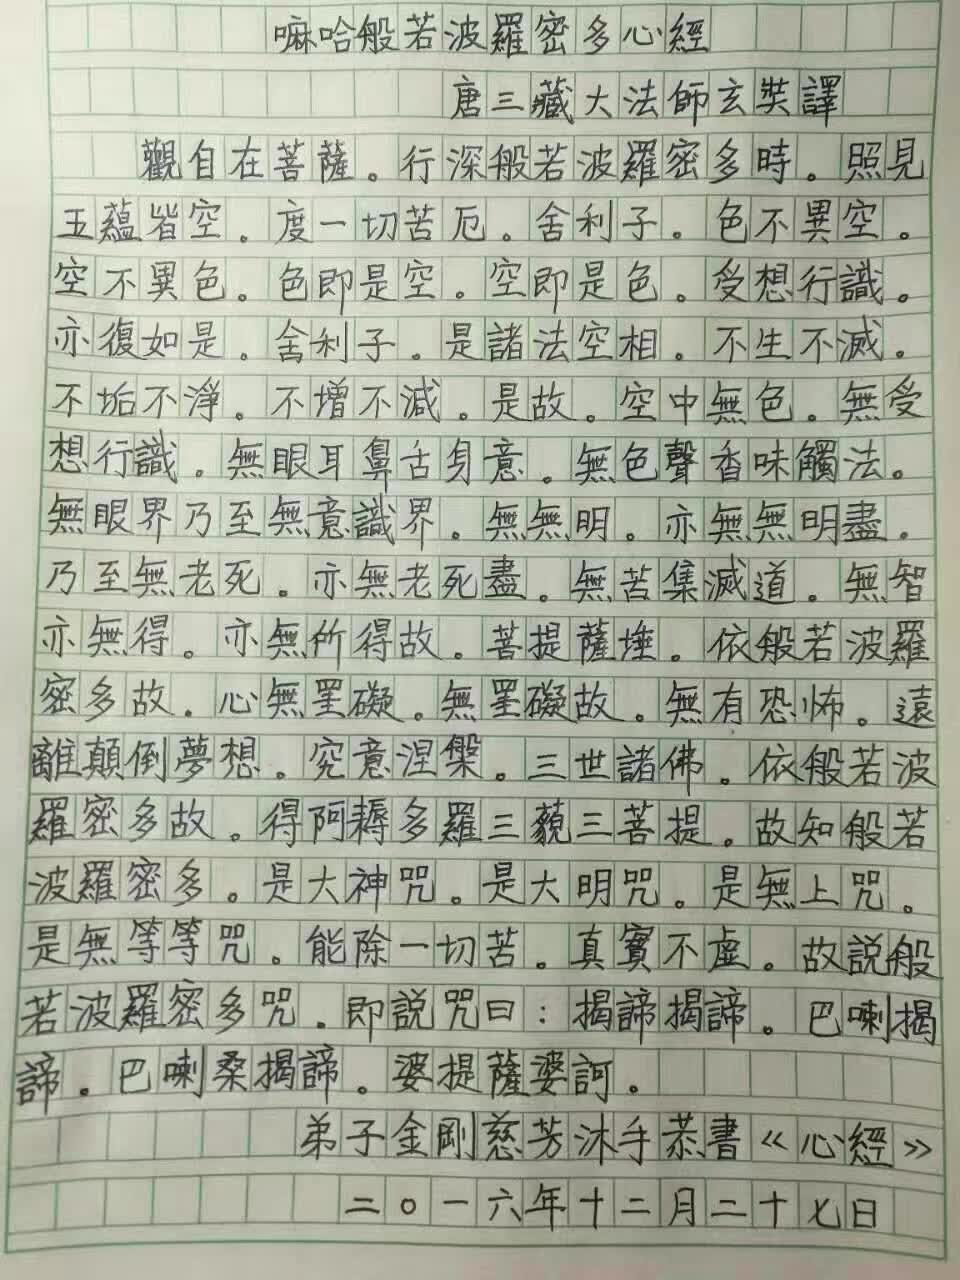 嘛哈般若波羅密多心經
唐三藏大法師玄奘譯
觀自在菩薩。行深般若波羅密多時。照見
五蘊皆空。度一切苦厄。舍利子。色不異空。
空不異色。色即是空。空即是色。受想行識。
亦復如是。舍利子。是諸法空相。不生不滅。
不垢不淨。不增不減。是故。空中無色。無受
想行識。無眼耳鼻舌身意。無色聲香味觸法。
無眼界乃至無意識界。無無明。亦無無明盡。
乃至無老死。亦無老死盡。無苦集滅道。無智
亦無得。亦無所得故。菩提薩埵。依般若波羅
密多故。心無罣礙。無罣礙故。無有恐怖。遠
離顛倒夢想。究意涅槃。三世諸佛。依般若波
羅密多故。得阿耨多羅三藐三菩提。故知般若
波羅密多。是大神咒。是大明咒。是無上咒。
是無等等咒。能除一切苦。真實不虛。故説般
若波羅密多咒。即説咒曰：揭諦揭諦。巴喇揭
諦。巴喇桑揭諦。婆提薩婆訶。
弟子金剛慈芳沐手恭書《心經》
二〇一六年十二月二十七日